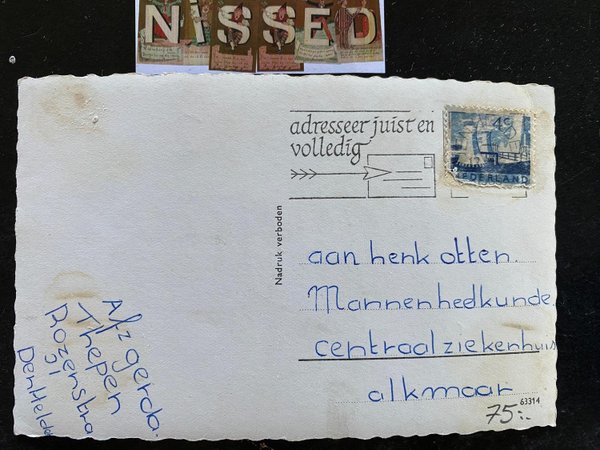 NISSED
adresseer juist en
volledig
4c
NEDERLAND
Nadruk verboden
aan henk otten.
Mannenheelkunde
centraal ziekenhuis
alkmaar
63314
75:-
Afz gerda.
Thepen
Rozenstra
31
Den Helde